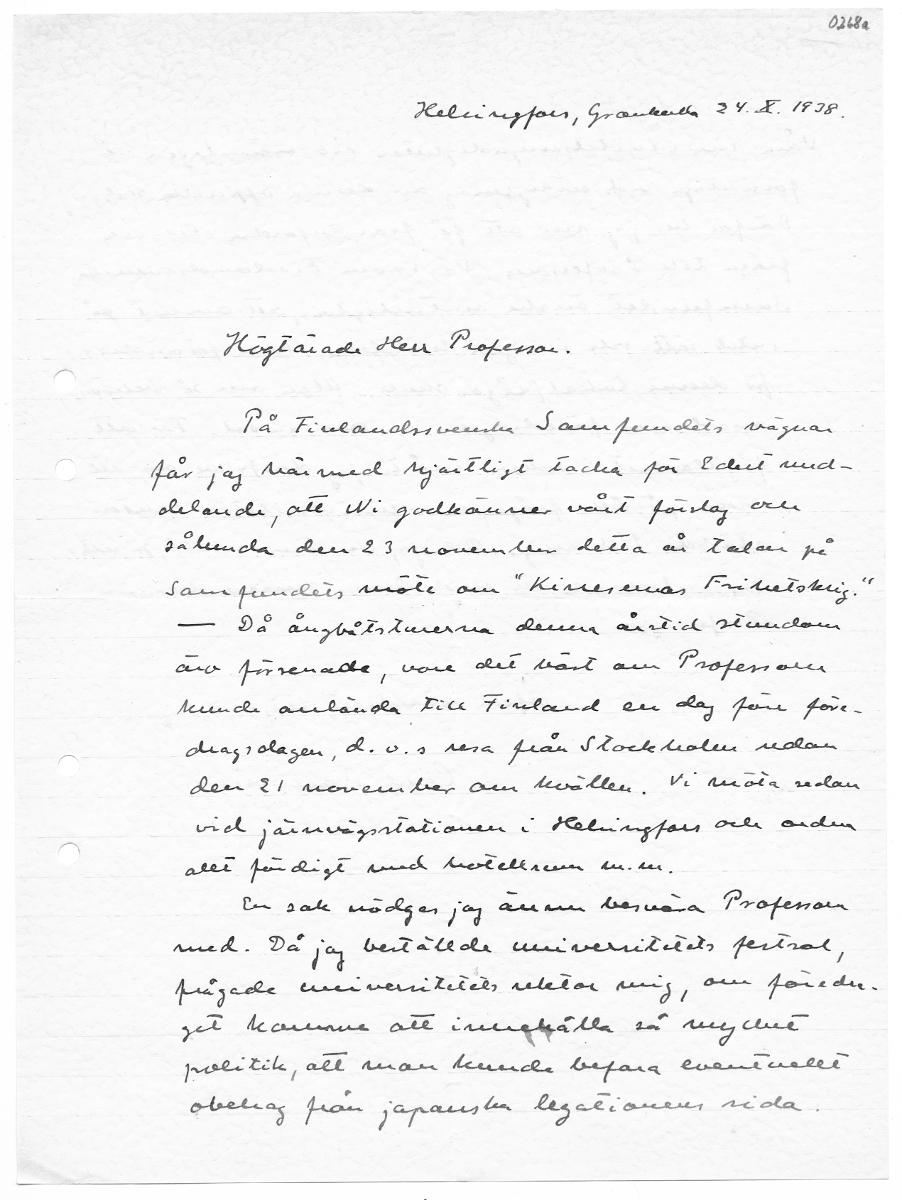 0268a
Helsingfors, Grankulla 24. X. 1938.
Högtärade Herr Professor.
På Finlandssvenska Samfundets vägnar
får jag härmed hjärtligt tacka för Edert med-
delande, att Ni godkänner vårt förslag och
sålunda den 23 november detta år talar på
Samfundets möte om "Kinesernas Frihetskrig."
— Då ångbåtsturerna denna årstid stundom
äro försenade, vore det bäst om Professorn
kunde anlända till Finland en dag före före-
dragsdagen, d.v.s resa från Stockholm redan
den 21 november om kvällen. Vi möta sedan
vid järnvägsstationen i Helsingfors och ordna
allt färdigt med hotellrum m.m.
En sak nödgas jag ännu besvära Professorn
med. Då jag beställde universitetets festsal,
frågade universitetets rektor mig, om föredra-
get komme att innehålla så mycket
politik, att man kunde befara eventuellt
obehag från japanska legationens sida.